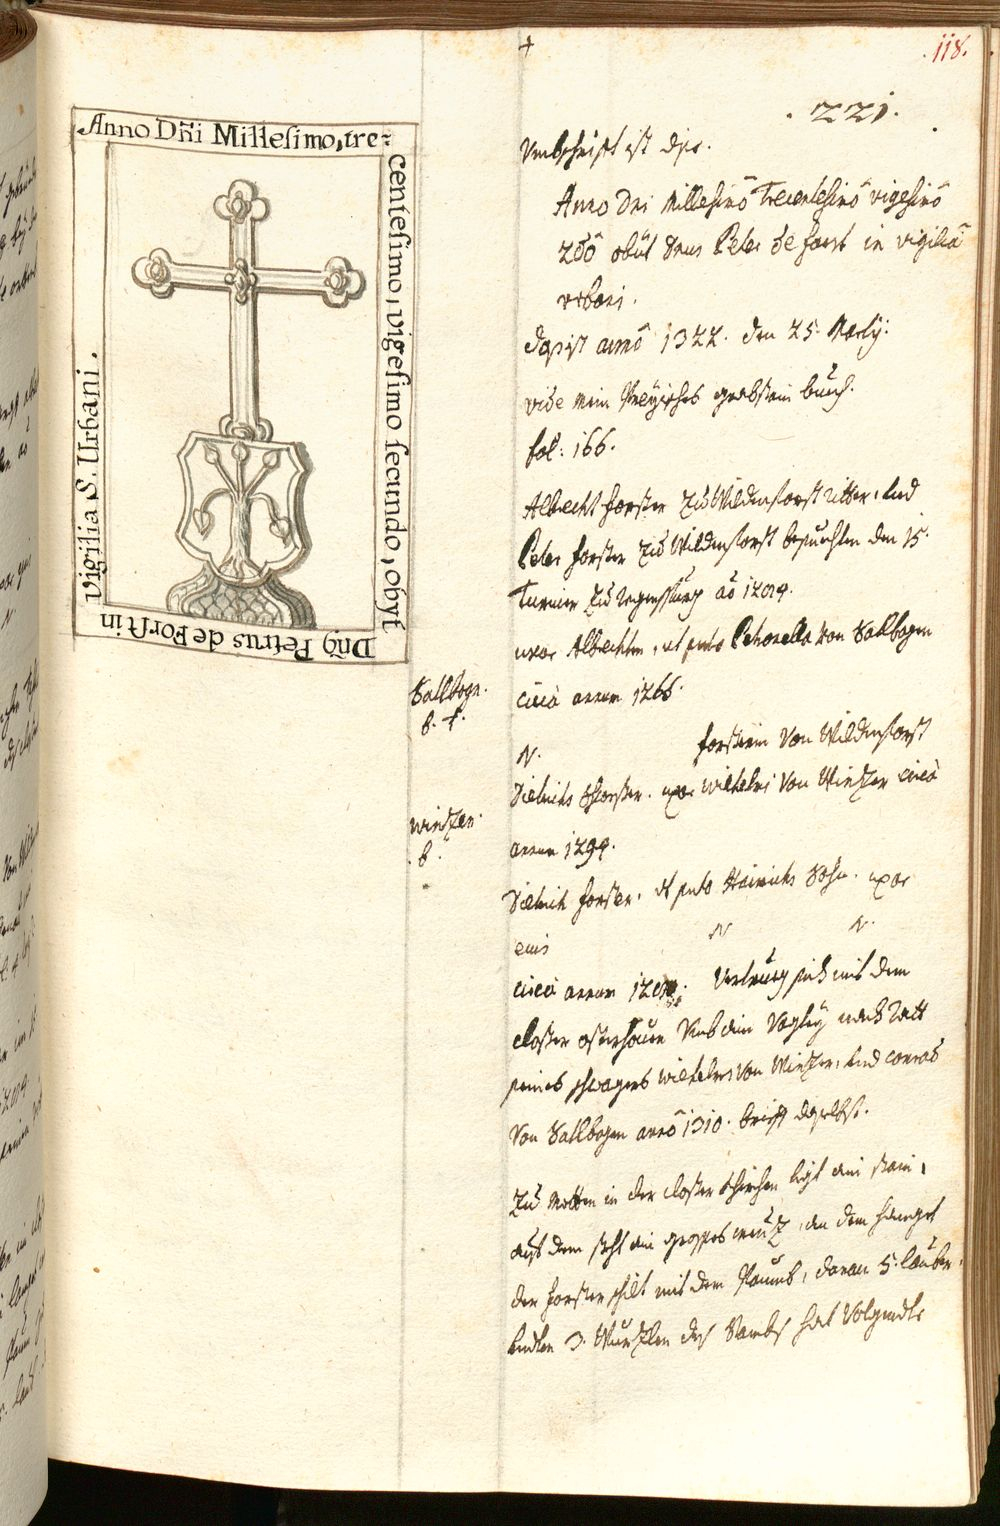 118.
221.
Anno Dñi Millesimo, tre-
centesimo, vigesimo secundo, obyt
Dñq Petrus de Forst in
vigilia S. Urbani.
Vmbschrifft ist dise.
Anno Dni Millesimo Trecentesimo vigesimo
2do obijt Dnus Peter de Forst in vigilia
vrbani.
Das ist anno 1322. den 25. Maÿ:
vide mein grabstain buch.
fol: 166.
Albrecht Forster zu Wildenforst ritter, und
Peter Forster zu Wildenforst besuechten den 15.
Turnier zu regenspurg
uxor Albrechten, ut puto Petronella von Sallbogen
circa annum 1266.
Sallbogn.
N. Forsterin von Wildenforst
Dietrichs Forster. uxor Wilhelmi von Wintzer circa
annum 1299.
Wintzer.
Dietrich Forster, ut puto Hainrichs Sohn. uxor
eius N N.
circa annum Vertrueg sich mit dem
closter osterhouen Vmb ain Vogteÿ nach Ratt
seines schwagers Wilhelms von Wintzer, und conrad
von Sallbogen anno 1310. brieff daselbst.
Zu Metten in der closter khirchen ligt ain stain,
auf dem steht ain grosses creutz, an dem hanget
der Forster schilt mit dem Paumb, daran 5. lauber,
unden 3. Wurtzlen des Pambs hat volgendte